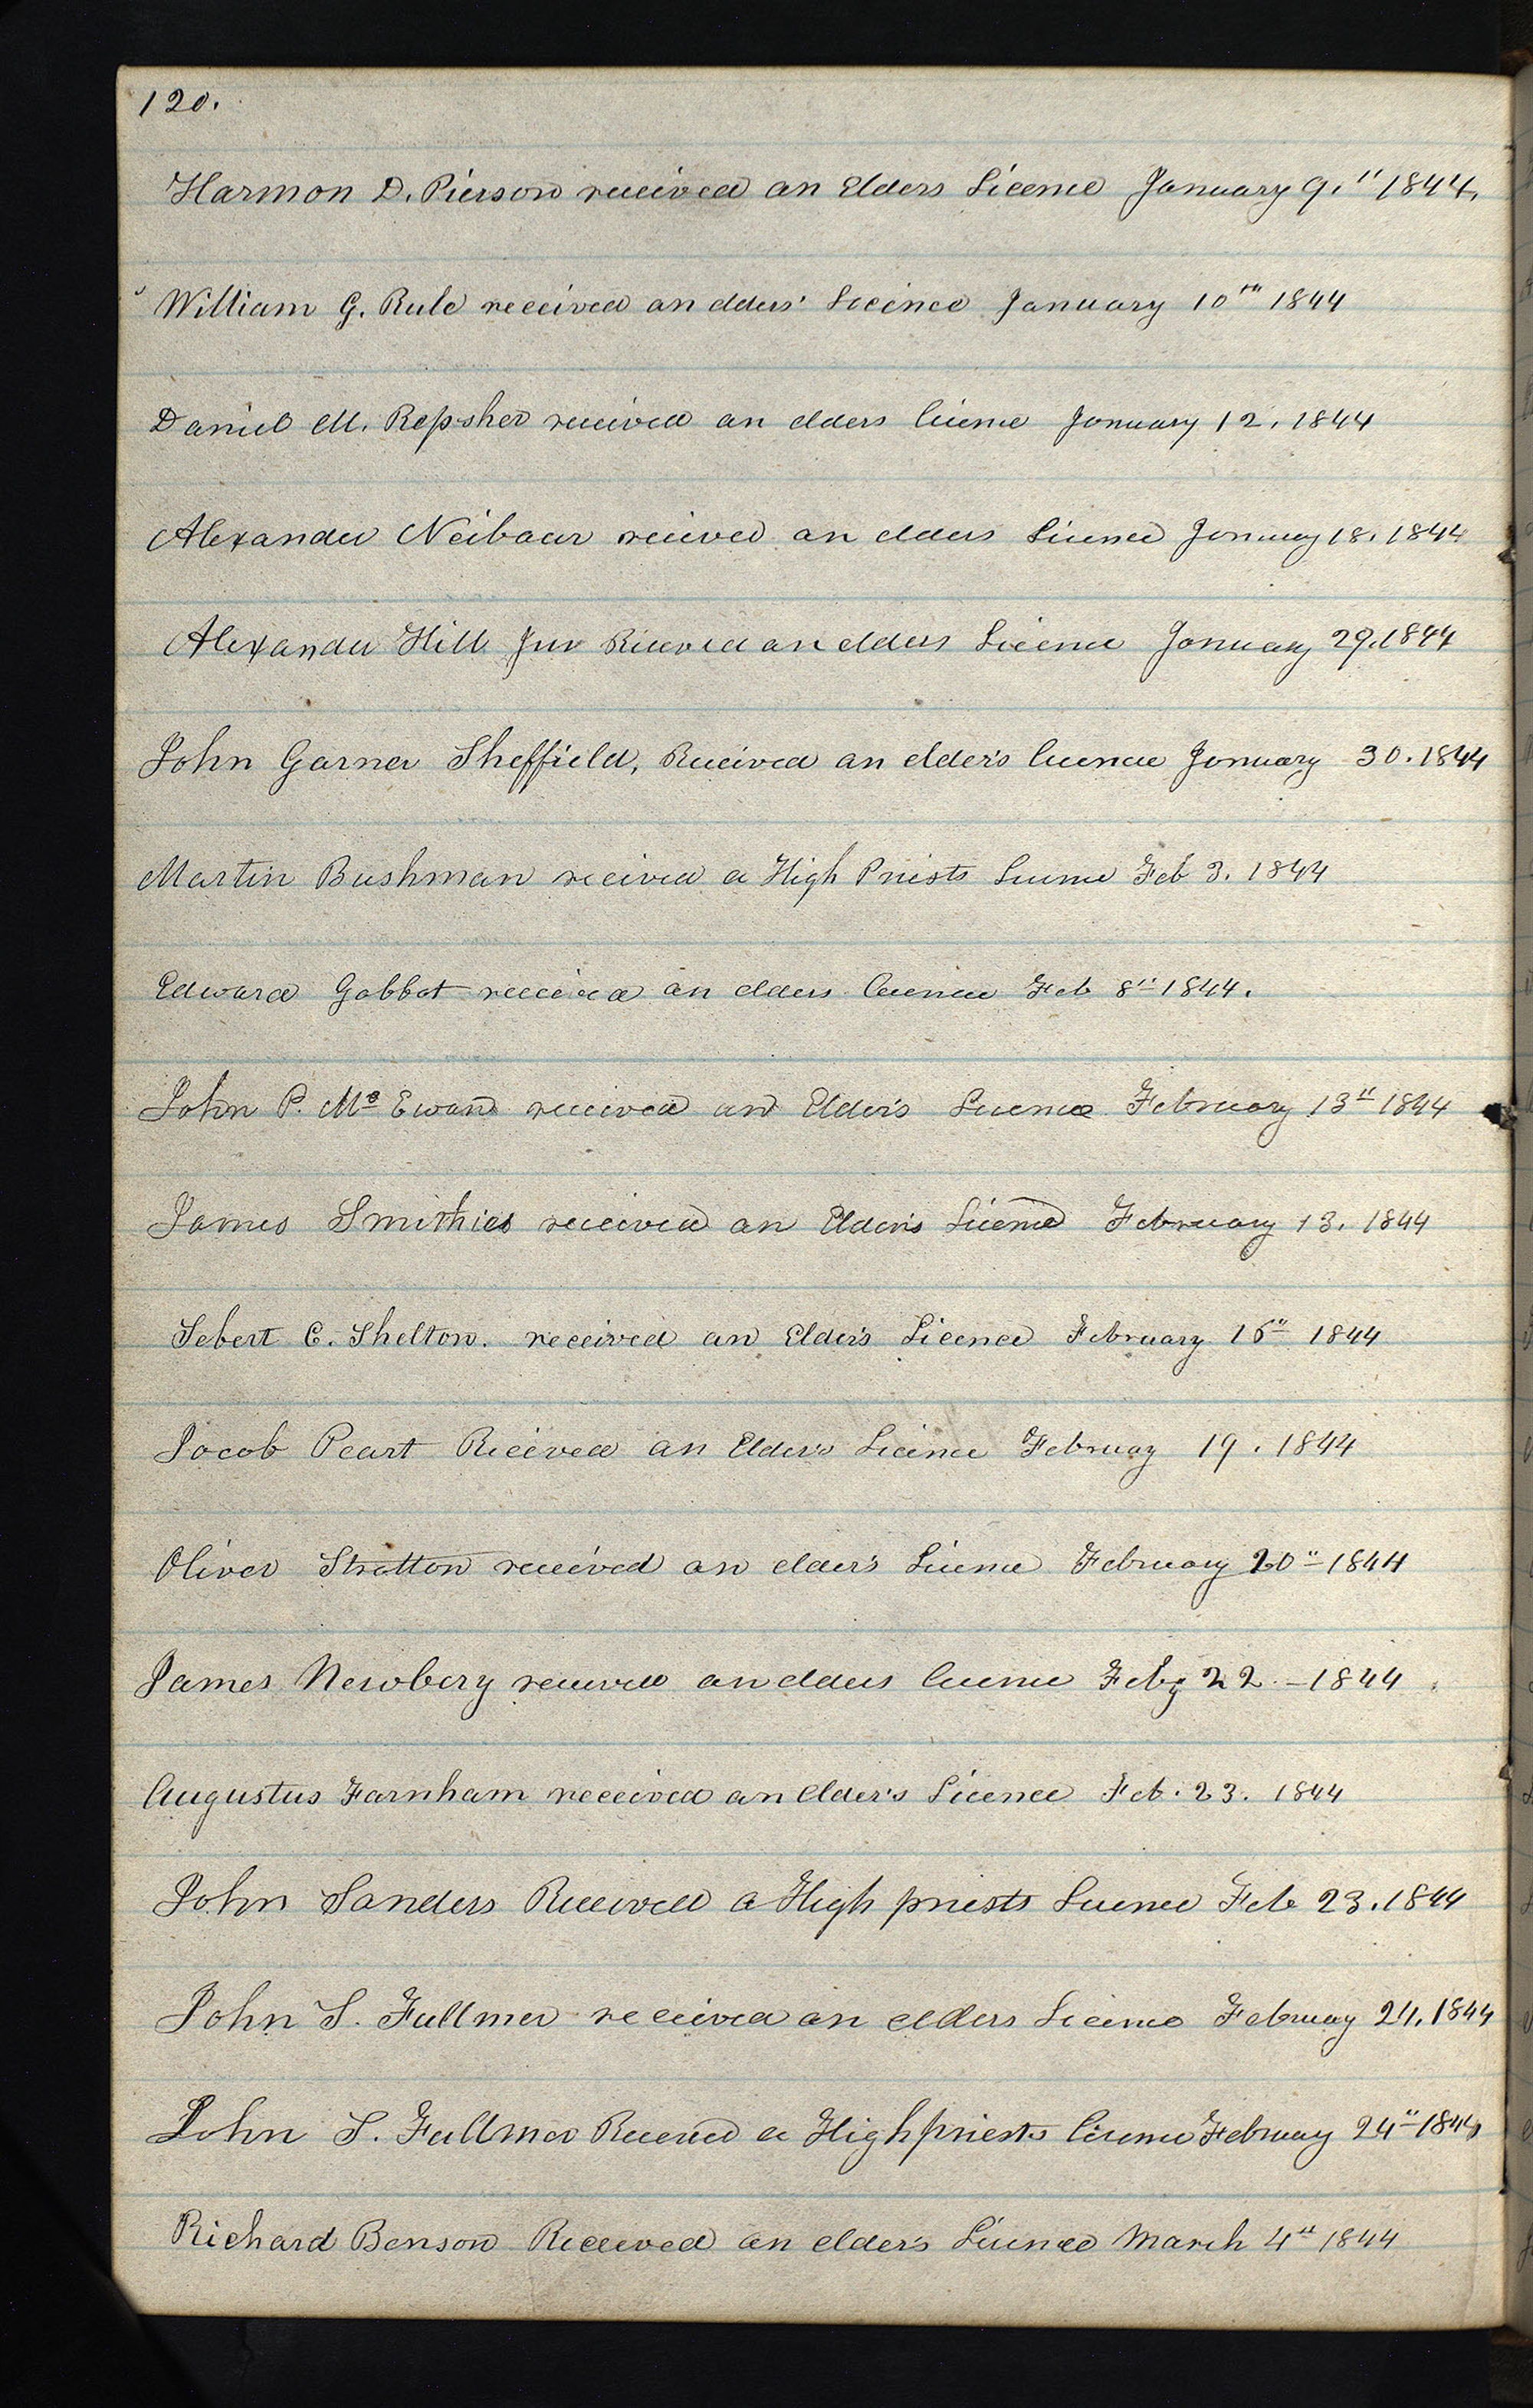 120.
Harmon D. Pierson received an Elders Licence January 9.th 1844.
William G. Rule received an elders' Licence January 10th 1844
Daniel M. Repsher received an elders licence January 12. 1844
Alexander Neibaur received an elders Licence January 18. 1844
Alexander Hill Junr Received an elders Licence January 29. 1844
John Garner Sheffield, Received an elder's licence January 30. 1844
Martin Bushman received a High Priests Licence Feb 3. 1844
Edward Gabbot received an elders licence Feb 8th 1844.
John P. Mc Ewan received an Elder's Licence February 13th 1844
James Smithies received an Elder's Licence February 13. 1844
Sebert C. Shelton. received an Elder's Licence February 16th 1844
Jacob Peart Received an Elder's Licence February 19. 1844
Oliver Stratton received an elder's Licence February 20th 1844
James Newbery received an elders licence Feby 22 - 1844
Augustus Farnham received an Elder's Licence Feb. 23. 1844
John Sanders Received a High priests Licence Feb 23. 1844
John S. Fullmer received an elders Licence February 24. 1844
John S. Fullmer Received a High priests licence February 24th 1844
Richard Benson Received an elder's Licence March 4th 1844